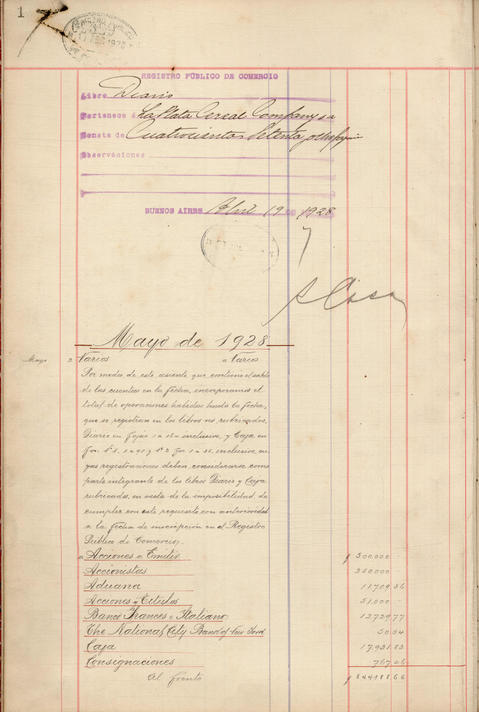 1
REGISTRO PÚBLICO DE COMERCIO
Libro Diario
Pertenece á La Plata Cereal Company S.A
Consta de Cuatrocientos Setenta y ocho fojas
Observaciones
BUENOS AIRES Abril 19 DE 1928
Mayo de 1928
Mayo 2 Varios a Varios
Por medio de este asiento que contiene el saldo
de las cuentas en la fecha, incorporamos el
total de operaciones habidas hasta la fecha,
que se registran en los libros no rubricados,
Diario en fojas 1 a inclusive, y Caja en
inclusive, cu-
yas registraciones deben considerarse como
parte integrante de los libros Diario y Caja
rubricados, en vista de la imposibilidad de
cumplir con este requisito con anterioridad
a la fecha de inscripción en el Registro
Público de Comercio.
a Acciones a Emitir $ 500.000
Accionistas 250.000
Aduana 11.709.56
Acciones y Titulos 51.000
Banco Frances e Italiano 13.729.77
The National City Bank of New York 50.04
Caja
Consignaciones 767.26
Al frente $